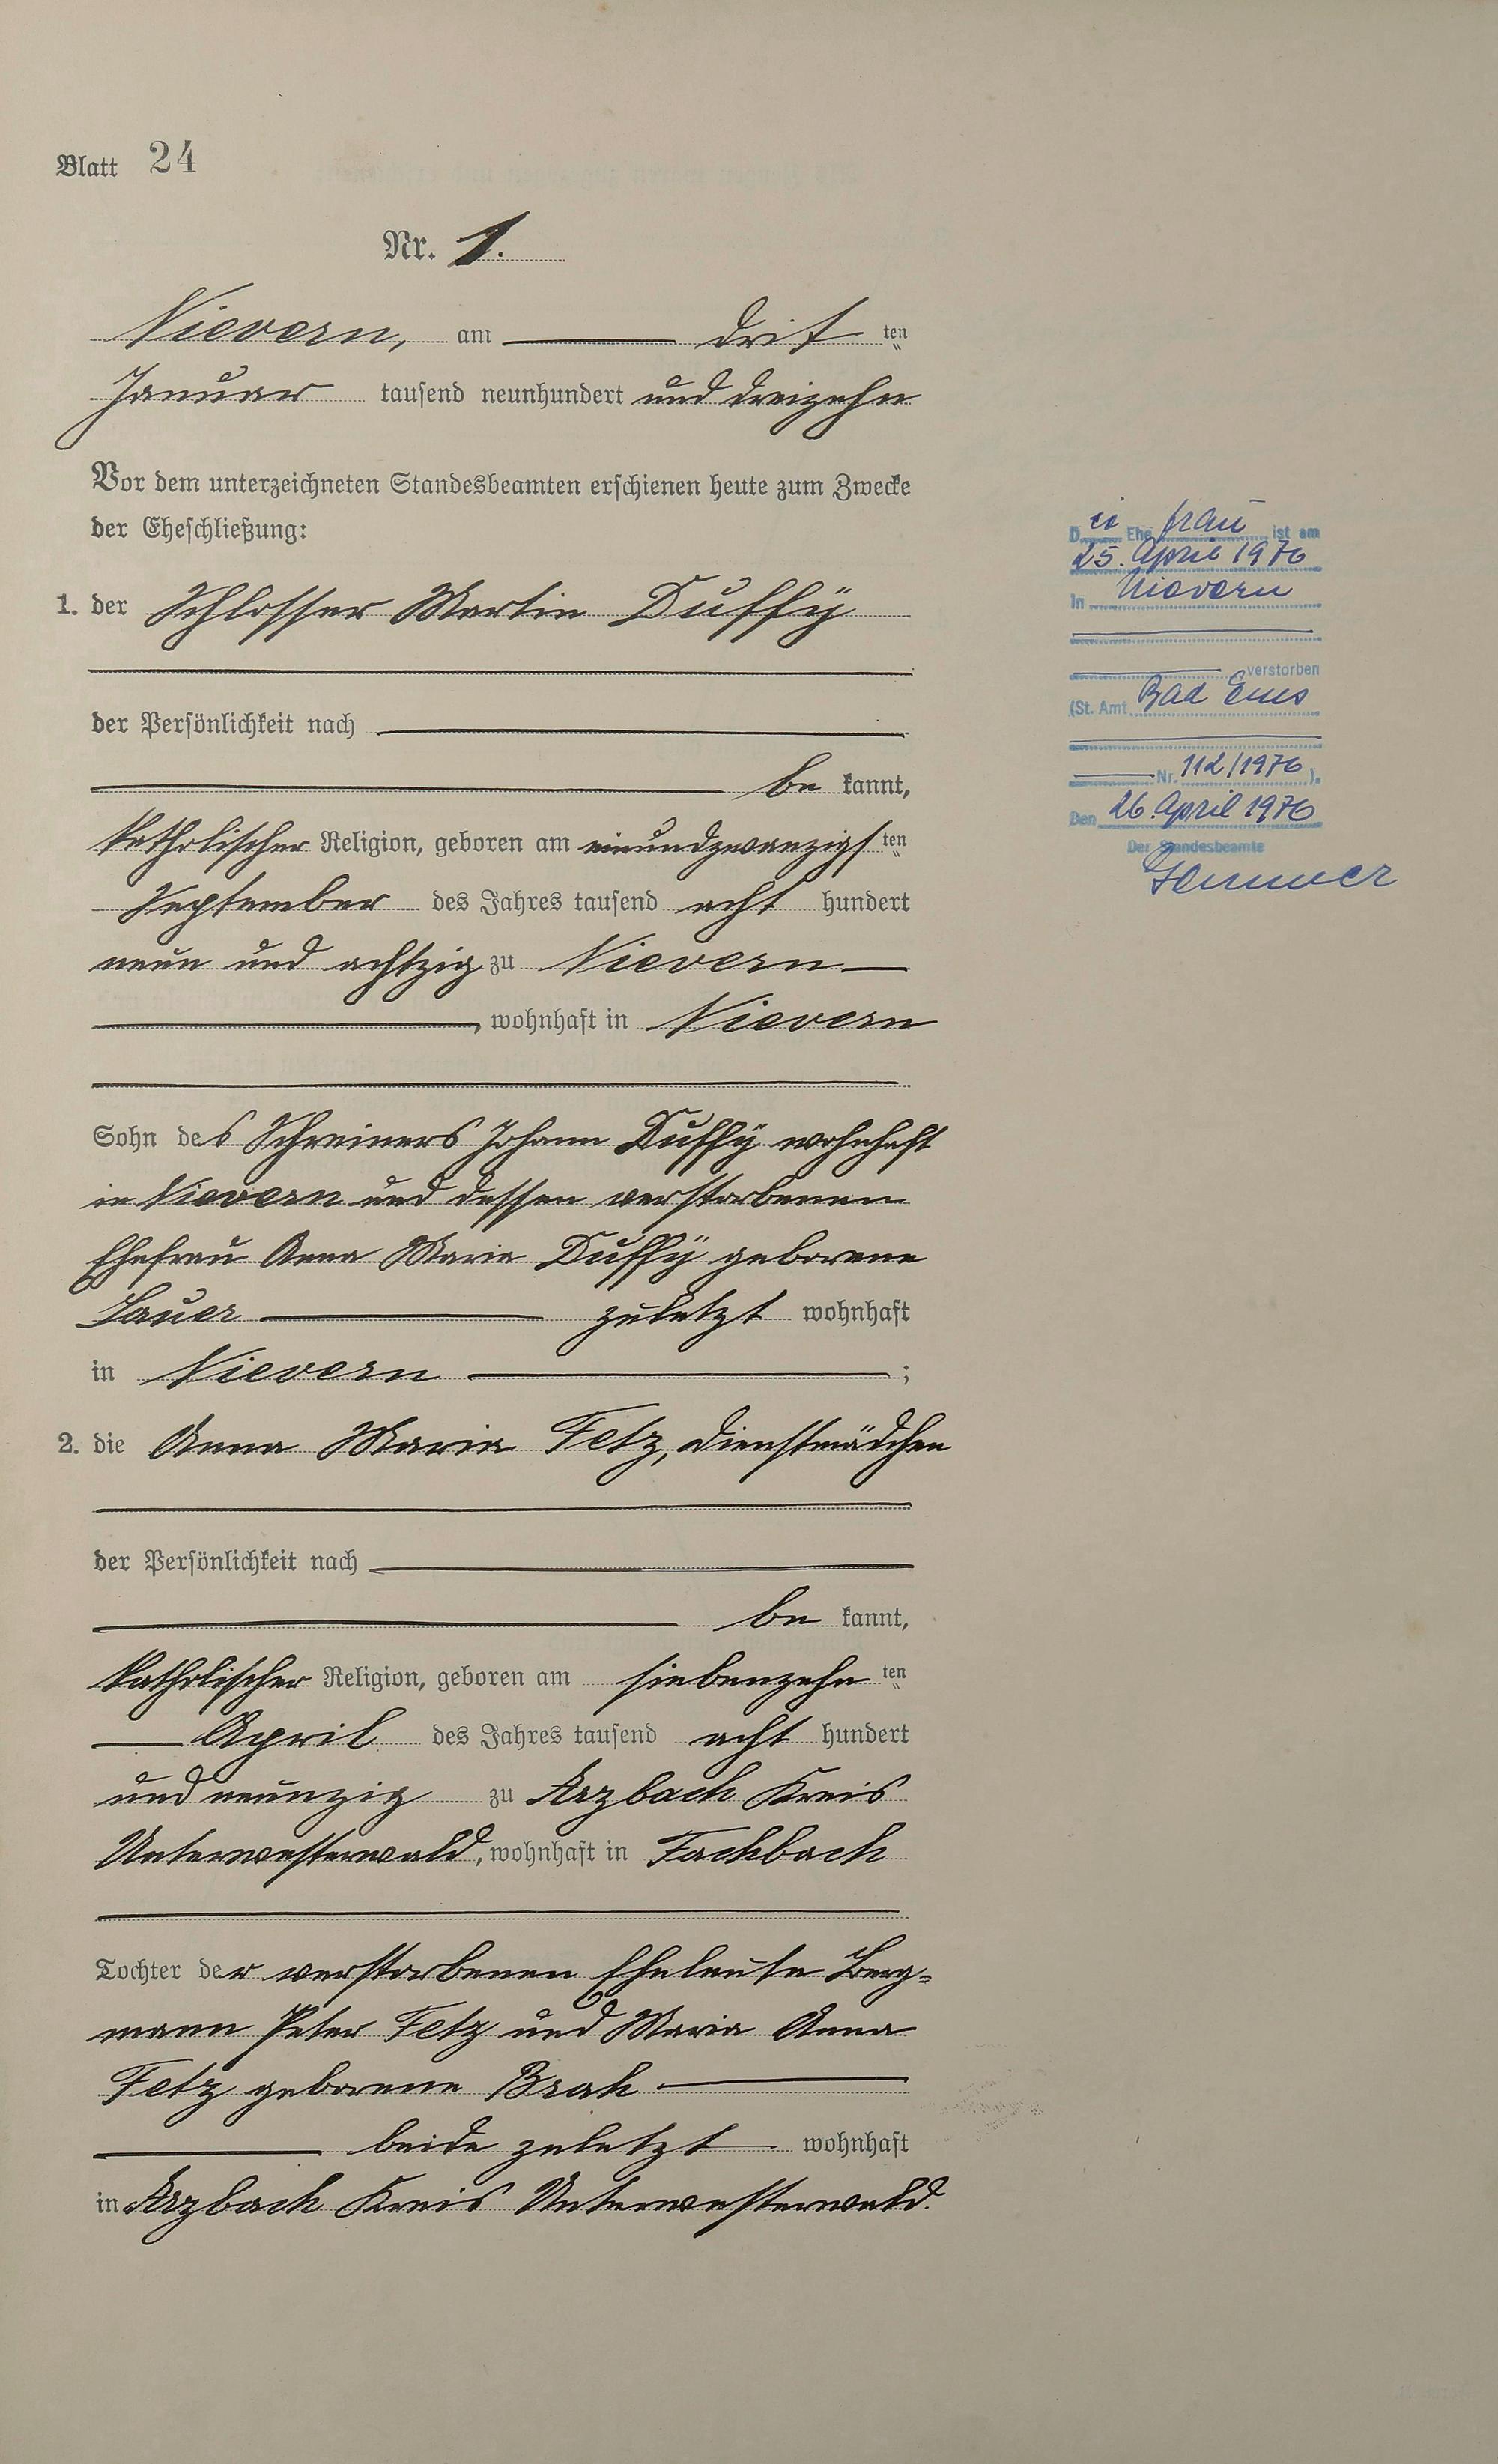 Blatt 24
Nr. 1.
Nievern, am drit ten
Januar tausend neunhundert und dreizehn
Vor dem unterzeichneten Standesbeamten erschienen heute zum Zwecke
der Eheschließung:
1. der Schlosser Martin Duffÿ
der Persönlichkeit nach
be kannt,
katholischer Religion, geboren am einundzwanzigs ten
September des Jahres tausend acht hundert
neun und achtzig zu Nievern
, wohnhaft in Nievern
Sohn des Schreiners Johann Duffÿ wohnhaft
in Nievern und dessen verstorbenen
Ehefrau Anna Maria Duffÿ geborene
Lauer zuletzt wohnhaft
in Nievern ;
2. die Anna Maria Fetz, Dienstmädchen
der Persönlichkeit nach
be kannt,
katholischer Religion, geboren am siebenzehn ten
April des Jahres tausend acht hundert
und neunzig zu Arzbach Kreis
Unterwesterwald, wohnhaft in Fachbach
Tochter der verstorbenen Eheleute Berg=
mann Peter Fetz und Maria Anna
Fetz geborene Brah
beide zuletzt wohnhaft
in Arzbach Kreis Unterwesterwald.
Die Ehefrau ist am
25. April 1976
In Nievern
verstorben
(St. Amt Bad Ems
Nr. 112/1976).
Den 26. April 1976
Der Standesbeamte